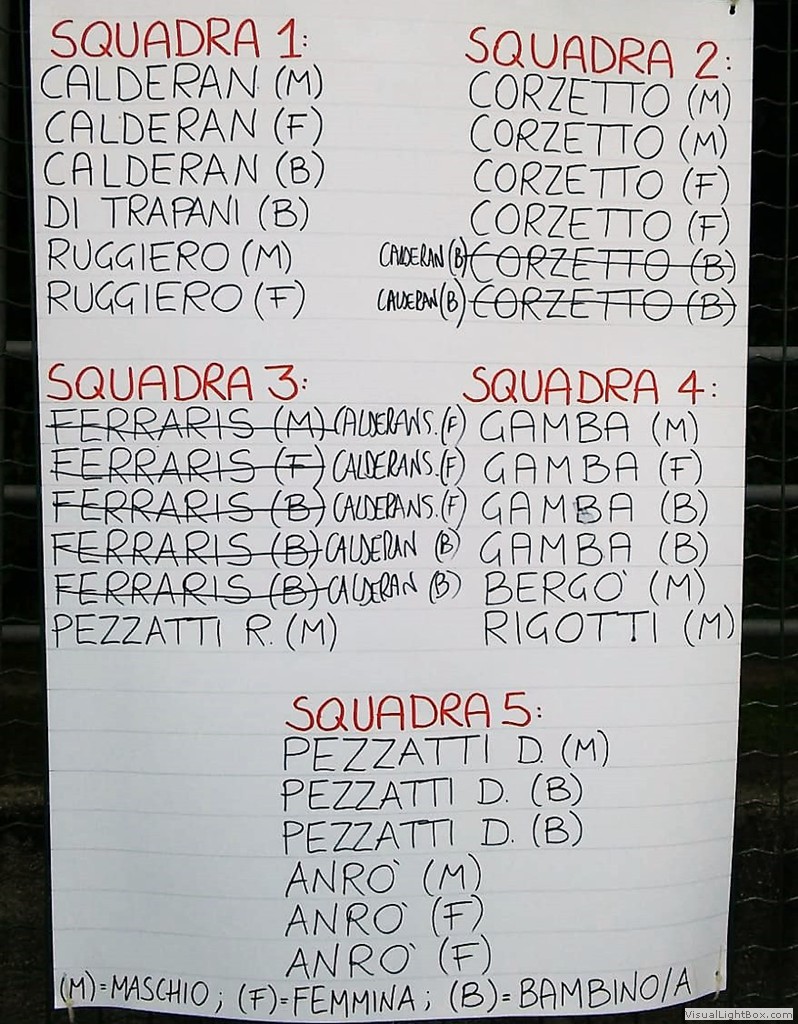 SQUADRA 1:
CALDERAN (M)
CALDERAN (F)
CALDERAN (B)
DI TRAPANI (B)
RUGGIERO (M)
RUGGIERO (F)
SQUADRA 2:
CORZETTO (M)
CORZETTO (M)
CORZETTO (F)
CORZETTO (F)
CALDERAN (B) CORZETTO (B)
CALDERAN (B) CORZETTO (B)
SQUADRA 3:
FERRARIS (M) CALDERAN S. (F)
FERRARIS (F) CALDERAN S. (F)
FERRARIS (B) CALDERAN S. (F)
FERRARIS (B) CALDERAN (B)
FERRARIS (B) CALDERAN (B)
PEZZATTI R. (M)
SQUADRA 4:
GAMBA (M)
GAMBA (F)
GAMBA (B)
GAMBA (B)
BERGO' (M)
RIGOTTI (M)
SQUADRA 5:
PEZZATTI D. (M)
PEZZATTI D. (B)
PEZZATTI D. (B)
ANRO' (M)
ANRO' (F)
ANRO' (F)
(M)=MASCHIO; (F)=FEMMINA; (B)=BAMBINO/A
VisualLightBox.com